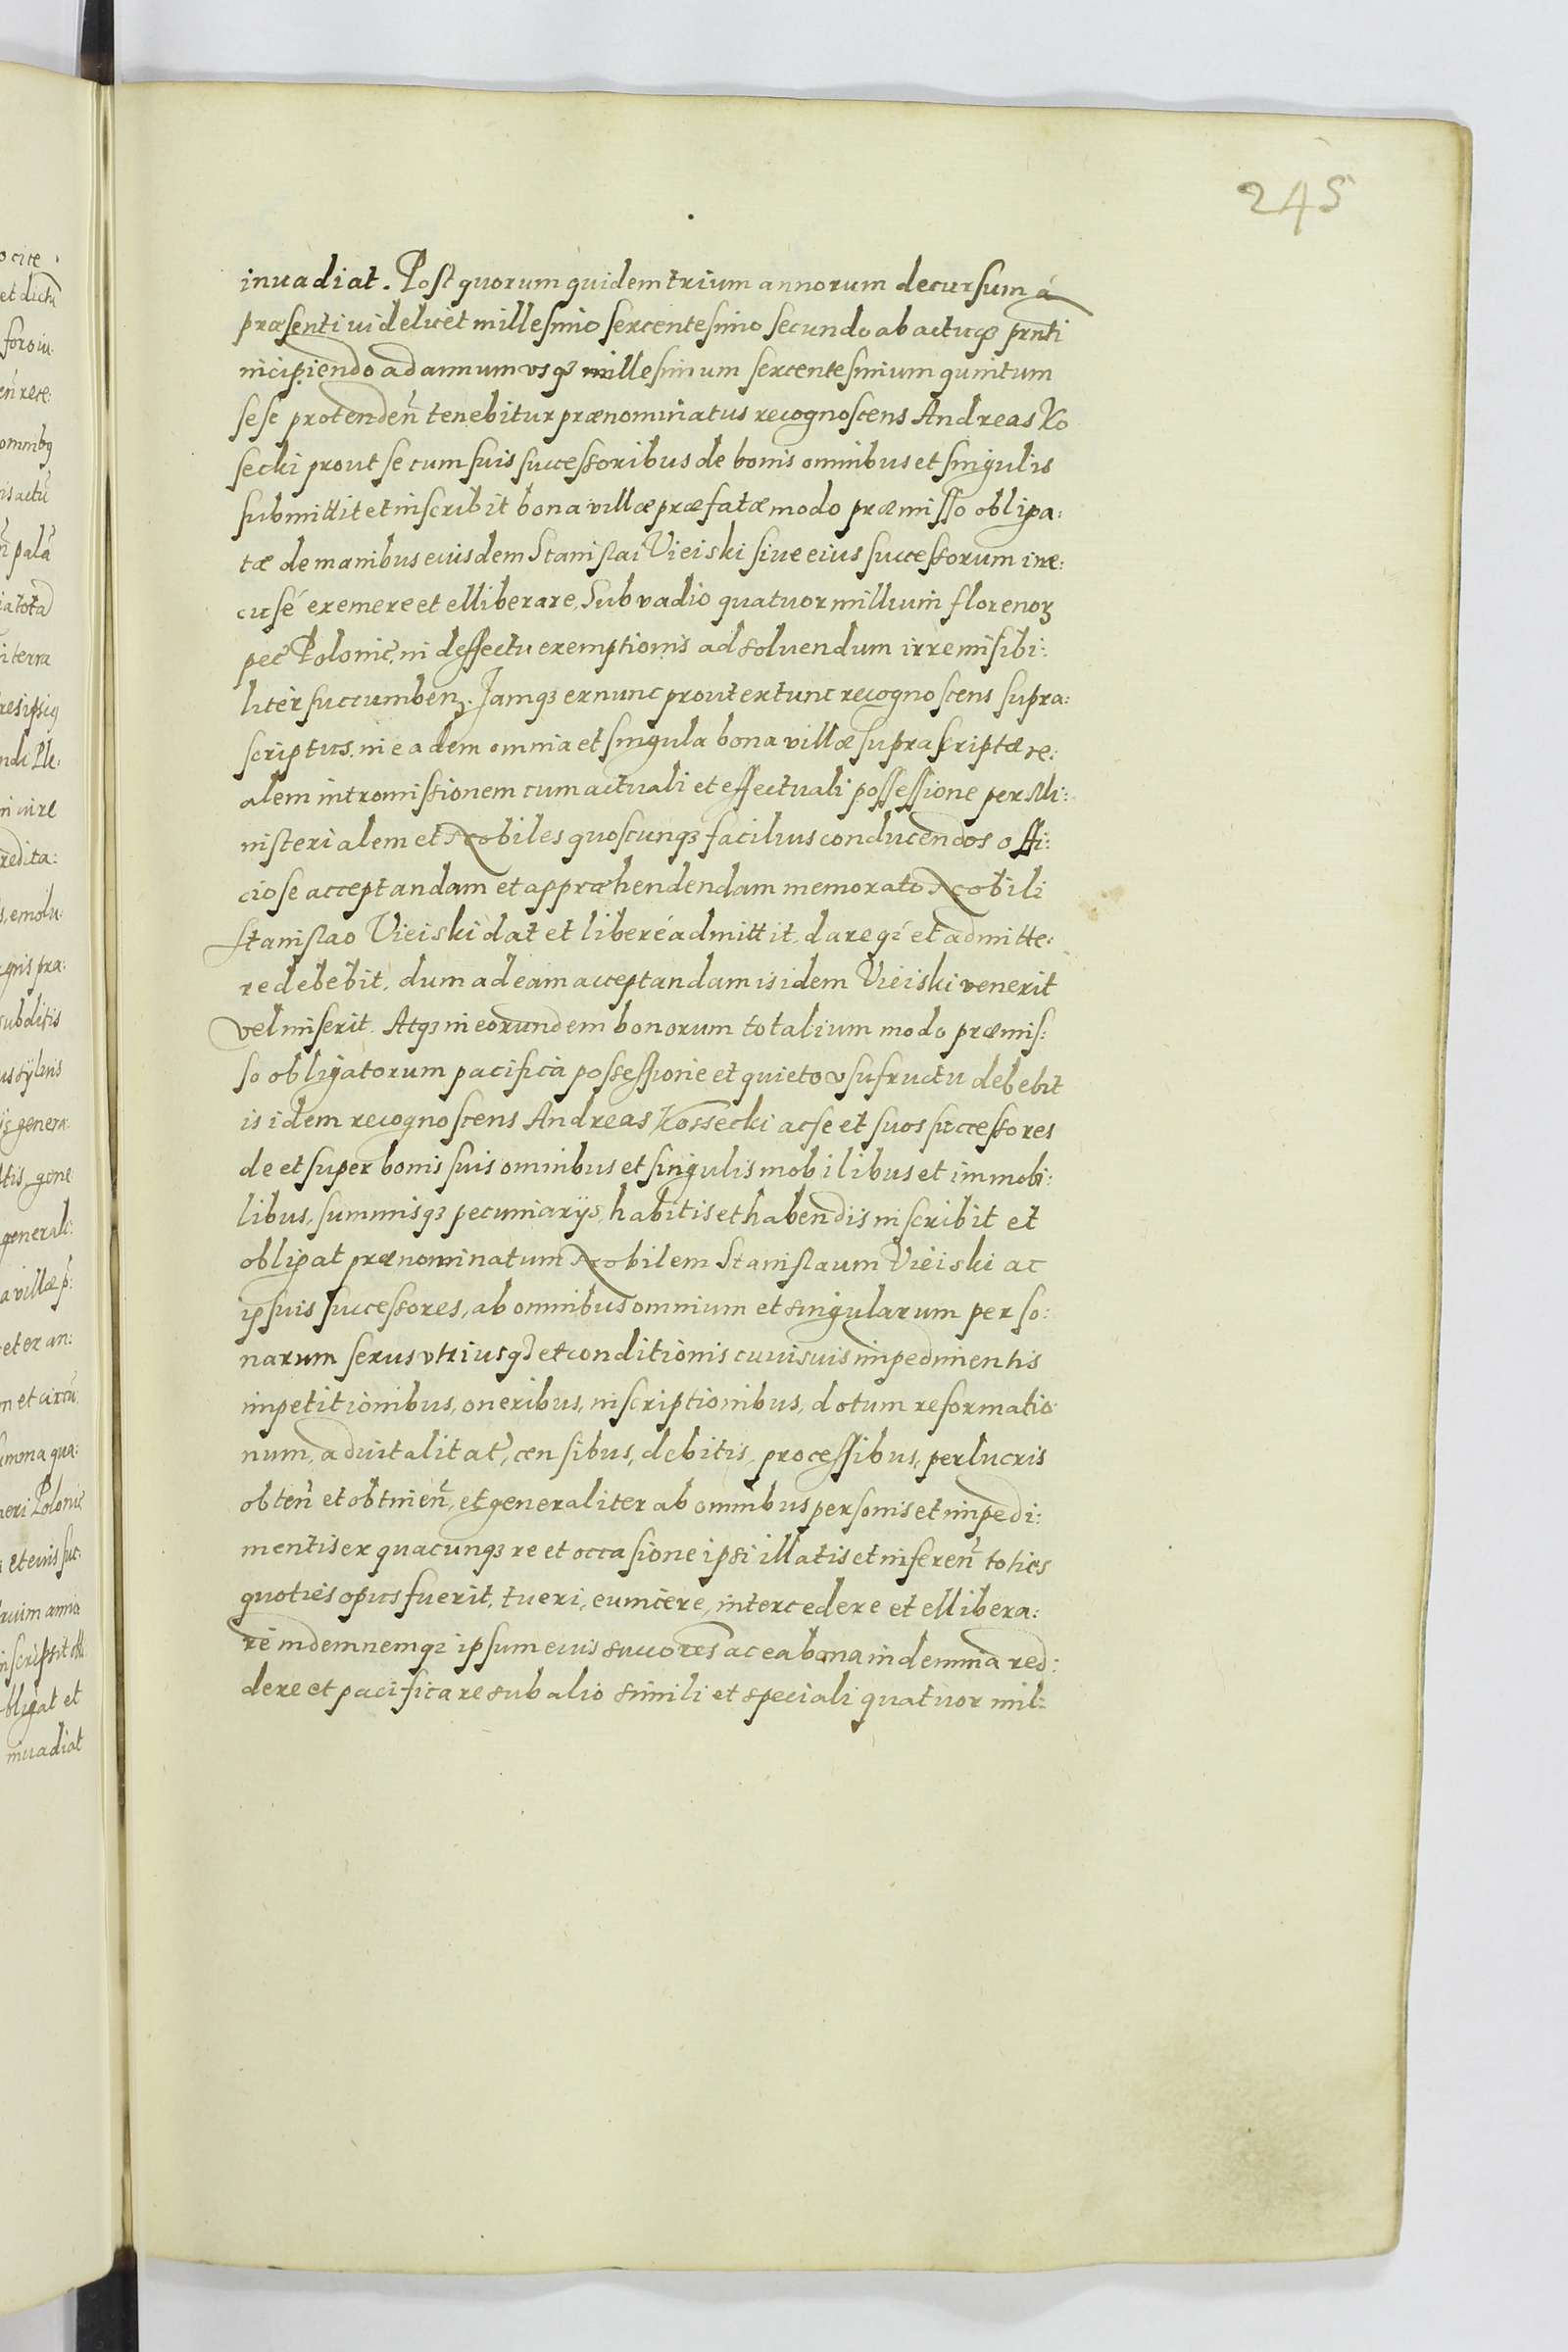 245
inuadiat. Post quorum quidem trium annorum decursum á
præsenti uidelicet millesimo sexcentesimo secundo ab actuq3 prnti
incipiendo ad annum vsq3 millesimum sexcentesimum quintum
sese protendeñ tenebitur prænominatus recognoscens Andreas Ko
secki prout se cum suis successoribus de bonis omnibus et singulis
submittit et inscribit bona villæ præfatæ modo præmisso obliga:
tæ de manibus eiusdem Stanislai Vieiski siue eius successorum irre:
cusé exemere et elliberare. Sub vadio quatuor millium florenoꝝ
pec̃ Polonic̃, in deffectu exemptionis ad soluendum irremisibi:
litèr succumbenꝫ. Jamq3 exnunc prout extunc recognoscens supra:
scriptus, in eadem omnia et singula bona villæ suprascriptæ re:
alem intromissionem cum actuali et effectuali possessione per Mi:
nisterialem et Nobiles quoscunq3 facilius conducendos offi:
ciose acceptandam et appræhendendam memorato Nobili
Stanislao Vieiski dat et liberé admittit, dareq3 et admitte:
re debebit, dum ad eam acceptandam is idem Vieiski venerit
vel miserit. Atq3 in eorundem bonorum totalium modo præmis:
so obligatorum pacifica possessione et quieto vsufructu debebit
is idem recognoscens Andreas Kossecki ac se et suos successores
de et super bonis suis omnibus et singulis mobilibus et immobi:
libus, summisq3 pecuniarijs, habitis et habendis inscribit et
obligat prænominatum Nobilem Stanislaum Vieiski ac
ipsuis successores, ab omnibus omnium et singularum perso:
narum sexus vtriusq3 et conditionis cuiusuis impedimentis
impetitionibus, oneribus, inscriptionibus, dotum reformatio
num, aduitalitat̃, censibus, debitis, processibus, per lucris
obteñ et obtineñ, et generaliter ab omnibus personis et impedi:
mentis ex quacunq3 re et occasione ipsi illatis et infereñ toties
quoties opus fuerit, tueri, euincere, intercedere et ellibera:
re indemnemq3 ipsum eius succores ac ea bona indemnia red:
dere et pacificare sub alio simili et speciali quatuor mil: